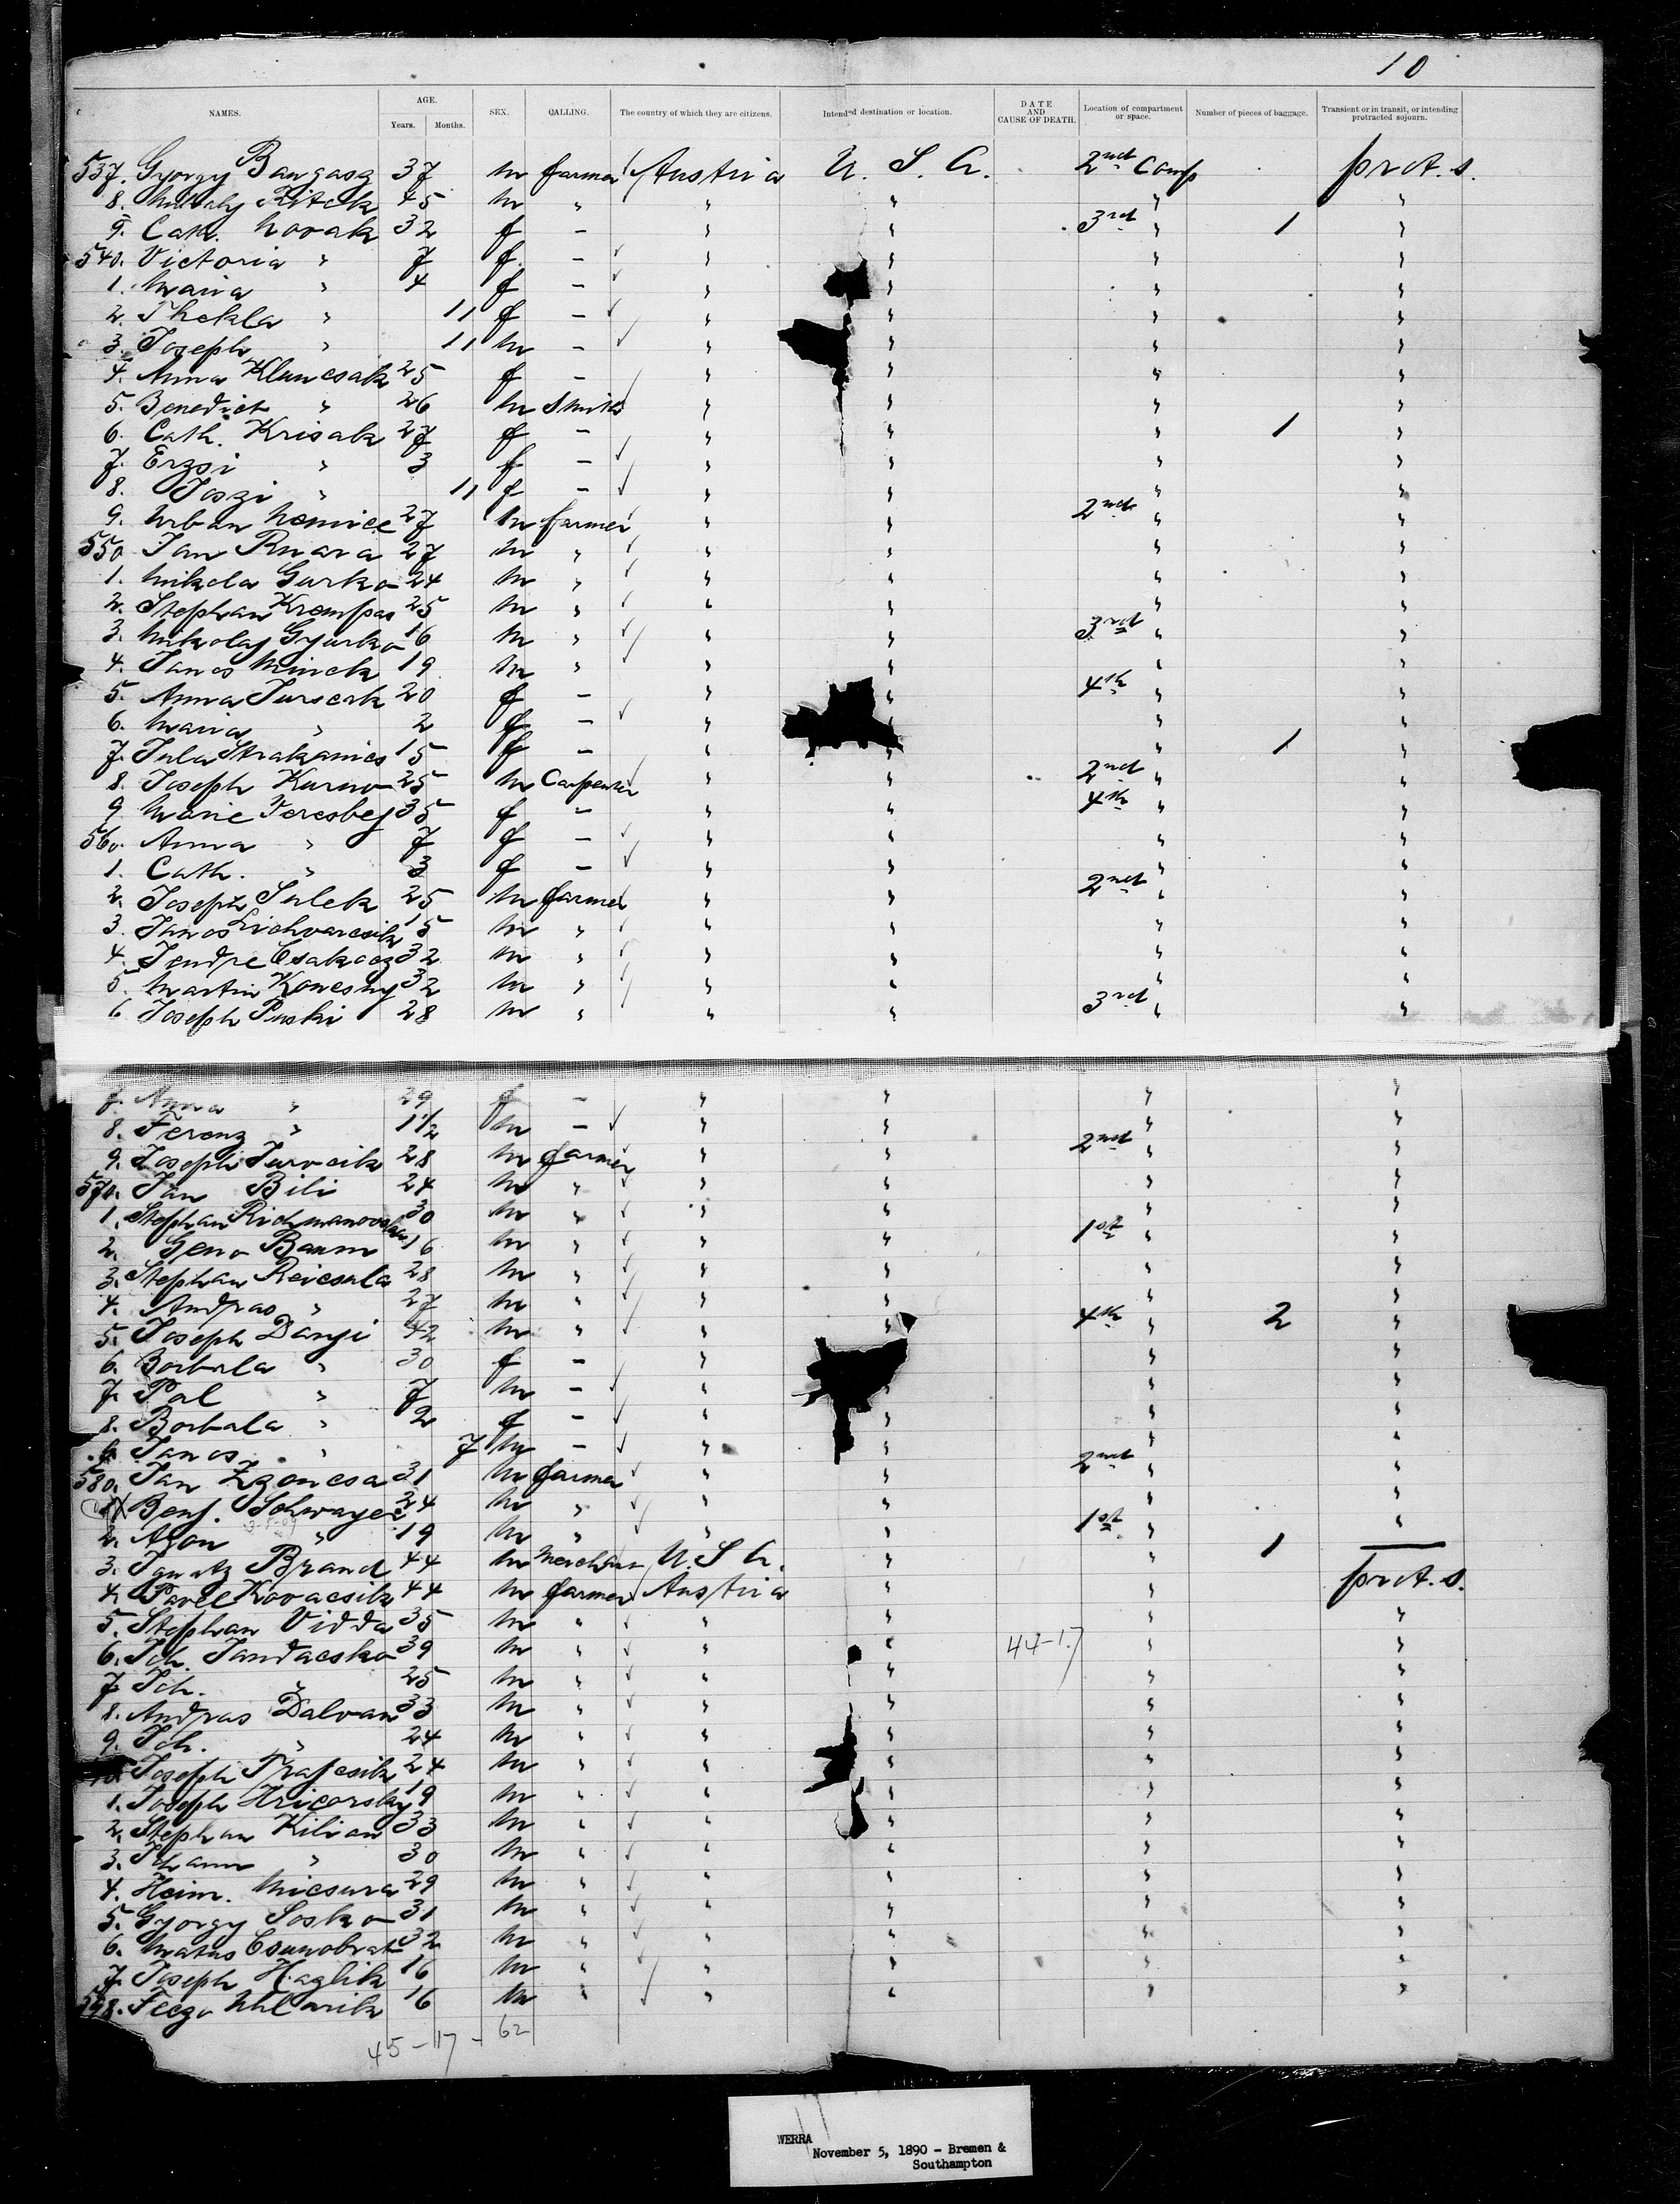 10
NAMES. AGE. Years. Months. SEX. CALLING. The country of which they are citizens. Intended destination or location. DATE AND CAUSE OF DEATH. Location of compartment or space. Number of pieces of baggage. Transient or in transit, or intending protracted sojourn.
537. Gyorgy Bangasz 37 m farmer Austria U. S. A. 2nd Comp prot. s.
8. Mihaly Ritck 45 m " " " " "
9. Cath. Novak 32 f - " " 3rd " 1 "
540. Victoria " 7 f - " " " "
1. Maria " 4 f - " " " "
2. Thekla " 11 f - " " " "
3. Joseph " 11 m - " " " "
4. Anna Kluncsak 25 f - " " " "
5. Benedict " 26 m Smith " " " "
6. Cath. Krisak 27 f - " " " 1 "
7. Erzsi " 3 f - " " " "
8. Joszi " 11 f - " " " "
9. Urban 27 m farmer " " 2nd " "
550 Jan 27 m " " " " "
1. Mikola Gurko 24 m " " " " "
2. Stephan Krempas 25 m " " " " "
3. Mikolaj Gyurko 16 m " " " 3rd " "
4. Janos Minck 19 m " " " " "
5. Anna Jurscak 20 f - " " 4th " "
6. Maria " 2 f - " " " "
7. Jula Strakanics 15 f - " " " 1 "
8. Joseph Kurno 25 m Carpenter " " 2nd " "
9 Marie Feresbej 35 f - " " 4th " "
560. Anna " 7 f - " " " "
1. Cath. " 3 f - " " " "
2. Joseph Sulek 25 m farmer " " 2nd " "
3. Janos Lichvarcsik 15 m " " " " "
4. Jendre Csakacz 32 m " " " " "
5. Martin Konesny 32 m " " " " "
6 Joseph Puski 28 m " " " 3rd " "
7. Anna " 29 f - " " " "
8. Ferenz " 1 1/2 m - " " " "
9. Joseph Jurocik 28 m farmer " " 2nd " "
570. Jan Bili 24 m " " " " "
1. Stephan 30 m " " " " "
2. Geno Baum 16 m " " " 1st " "
3. Stephan Reicsula 28 m " " " " "
4. Andras " 27 m " " " " "
5. Joseph Danyi 42 m " " " 4th " 2 "
6. Borbala " 30 f - " " " "
7. Pal " 7 m - " " " "
8. Borbala " 2 f - " " " "
9. Janos " 7 m - " " " "
580. Jan Zgoncsa 31 m farmer " " 2nd " "
1 Benj. Schwayer 24 m " " " " "
2. Aron " 19 m " " " 1st " "
3. Ignatz Brand 44 m Merchant U. S. A. " " 1 —
4. Pavel Kovacsik 44 m farmer Austria " " prot. s.
5. Stephan Vidda 35 m " " " " "
6. Joh. Jandacsko 39 m " " " 44-17 " "
7. Joh. " 25 m " " " " "
8. Andras Dalvan 33 m " " " " "
9. Joh. " 24 m " " " " "
Joseph Trajcsik 24 m " " " " "
1. Joseph Hricorsky 19 m " " " " "
2. Stephan Kilian 33 m " " " " "
3. Johann " 30 m " " " " "
4. Heinr. Micsura 29 m " " " " "
5. Gyorgy Sosko 31 m " " " " "
6. Matus 32 m " " " " "
7. Joseph Haglik 16 m " " " " "
598. 16 m " " " " "
45 - 17 - 62
WERRA
November 5, 1890 - Bremen &
Southampton